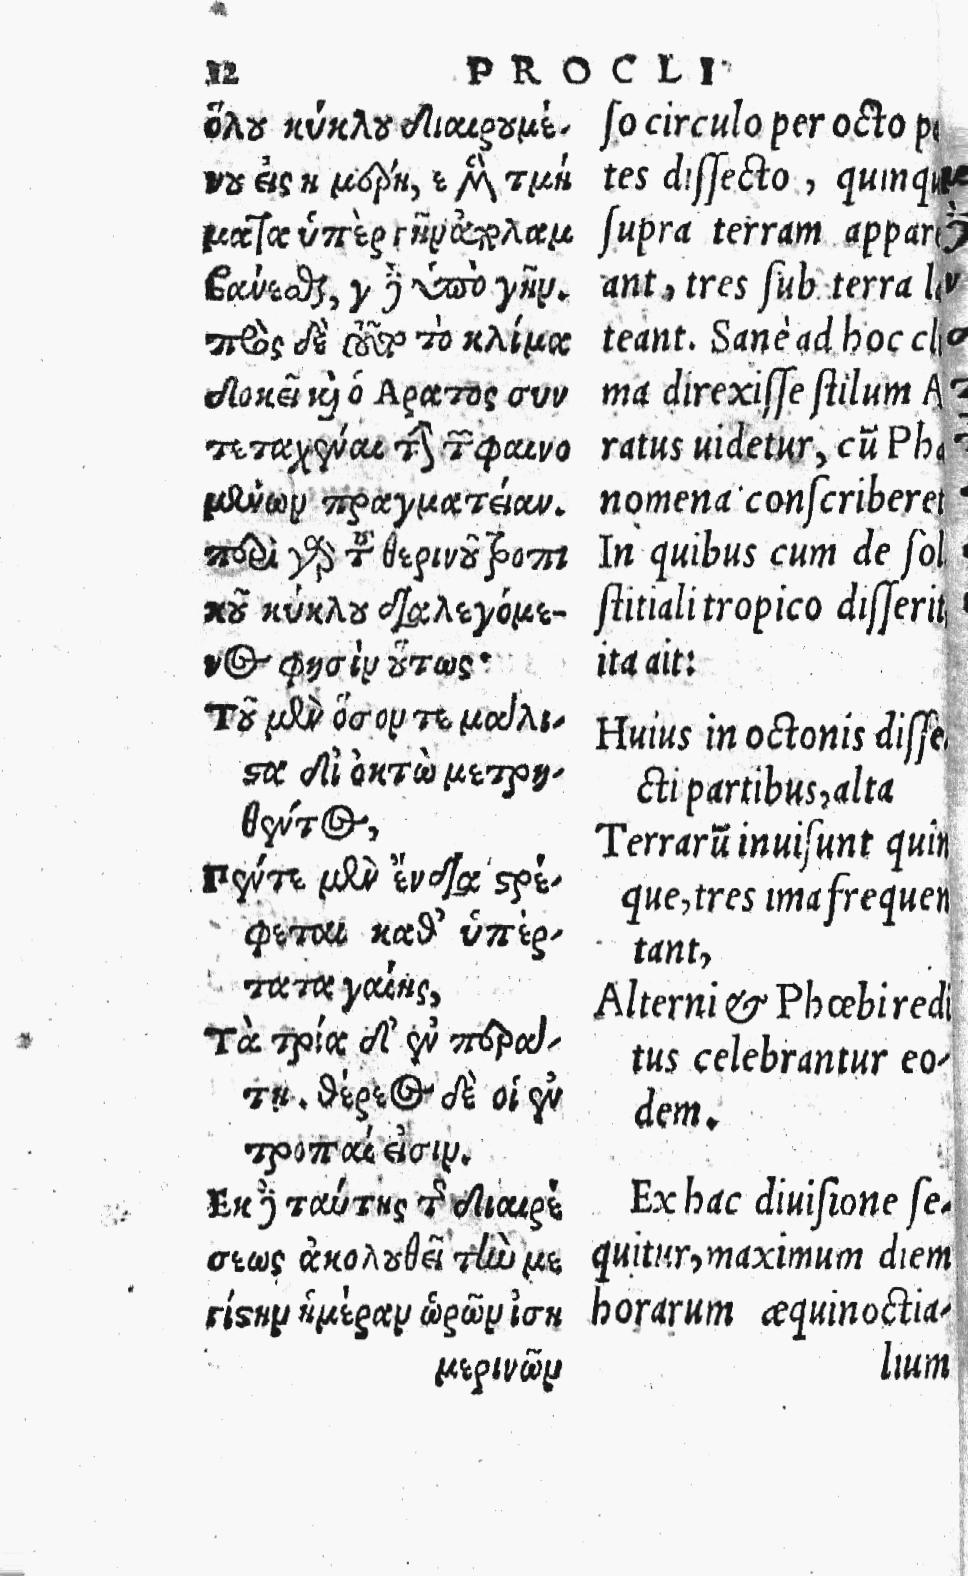 12 PROCLI
ὅλου κύκλου διαιρουμέ-
νου εἰς η μέρη, ε μὲν τμή
ματα ὑπὲρ γῆν ἀπολαμ
βάνεσθαι, γ δὲ ὑπὸ γῆν.
πρὸς δὲ τὸ κλίμα
δοκεῖ καὶ ὁ Αρατος συν
τεταχέναι τὴν τῶν φαινο
μένων πραγματείαν.
περὶ γὰρ τοῦ θερινοῦ τροπι
κοῦ κύκλου διαλεγόμε-
νος φησὶν οὕτως·
Τοῦ μὲν ὅσον τε μάλι-
στα δι ὀκτὼ μετρη-
θέντος,
Πέντε μὲν ἔνδια στρέ-
φεται καθ' ὑπέρ-
τατα γαίης,
Τὰ τρία δ' ἐν περά-
τη. θέρεος δὲ οἱ ἐν
τροπαί εἰσιν.
Εκ δὲ ταύτης τῆς διαιρέ
σεως ἀκολουθεῖ τὴν με
γίστην ἡμέραν ὡρῶν ἰση
μερινῶν
ſo circulo per octo p
tes diſſecto, quinqu
ſupra terram appar
ant, tres ſub terra l
teant. Sanè ad hoc cli
ma direxiſſe ſtilum A
ratus uidetur, cũ Phæ
nomena conſcriberet
In quibus cum de ſol
ſtitiali tropico diſſerit
ita ait:
Huius in octonis diſſe
cti partibus, alta
Terrarũ inuiſunt quin
que, tres ima frequen
tant,
Alterni & Phœbi redi
tus celebrantur eo-
dem.
Ex hac diuiſione ſe-
quitur, maximum diem
horarum æquinoctia-
lium